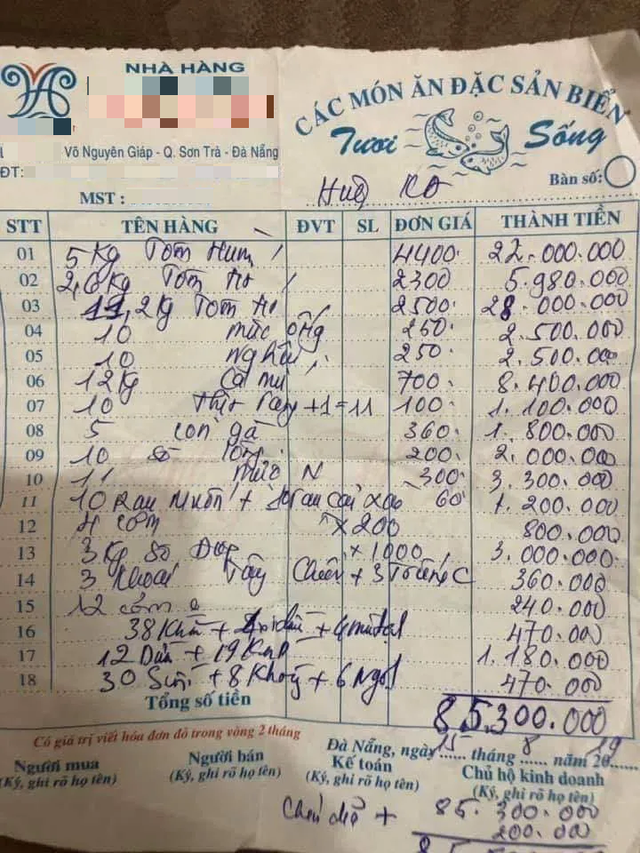 NHÀ HÀNG
CÁC MÓN ĂN ĐẶC SẢN BIỂN
Tươi Sống
Võ Nguyên Giáp - Q. Sơn Trà - Đà Nẵng
ĐT:
MST :
Bàn số:
STT TÊN HÀNG ĐVT SL ĐƠN GIÁ THÀNH TIỀN
01 5 Kg Tôm Hùm 4400 22.000.000
02 2,6 Kg Tôm 2300 5.980.000
03 11,2 Kg Tôm 2500 28.000.000
04 10 mực ống 250 2.500.000
05 10 nghêu 250 2.500.000
06 12 Kg Cá mú 700 8.400.000
07 10 Thịt +1=11 100 1.100.000
08 5 con gà 360 1.800.000
09 10 200 2.000.000
10 11 mực N 300 3.300.000
11 10 Rau Muốn + 10 rau cải xào 60 1.200.000
12 4 cơm x200 800.000
13 3 Kg Sò x 1000 3.000.000
14 3 Khoai Tây Chiên + 3 Trứng C 360.000
15 12 cơm 240.000
16 38 Khăn + 470.000
17 12 Dừa + 19 Ken 1.180.000
18 30 Suối + 8 + 6 Ngọt 470.000
Tổng số tiền 85.300.000
Có giá trị viết hóa đơn đỏ trong vòng 2 tháng
Đà Nẵng, ngày 15 tháng 8 năm 2019
Người mua Người bán Kế toán Chủ hộ kinh doanh
(Ký, ghi rõ họ tên) (Ký, ghi rõ họ tên) (Ký, ghi rõ họ tên) (Ký, ghi rõ họ tên)
+ 85.300.000
200.000